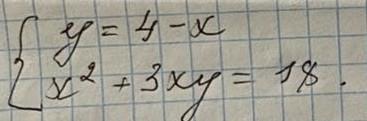 y = 4 - x
x² + 3xy = 18.